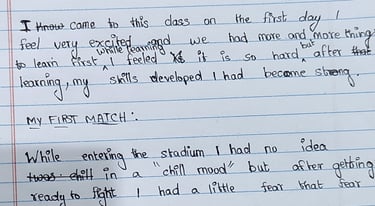 I know came to this class on the first day I
feel very excited and we had more and more things
to learn first, while learning I feeled it is so hard, but after that
learning, my skills developed I had become strong.
MY FIRST MATCH:
While entering the stadium I had no idea
I was chill in a "chill mood" but after getting
ready to fight I had a little fear that fear